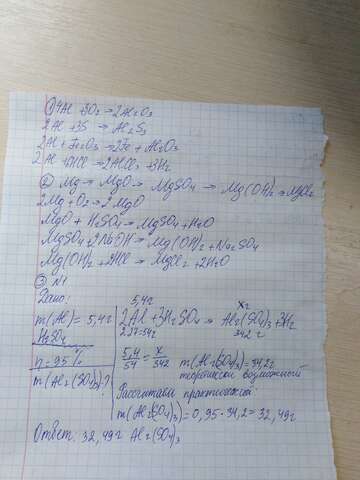 ① 4Al + 3O₂ → 2Al₂O₃
2Al + 3S → Al₂S₃
2Al + Fe₂O₃ → 2Fe + Al₂O₃
2Al + 6HCl → 2AlCl₃ + 3H₂
② Mg → MgO → MgSO₄ → Mg(OH)₂ → MgCl₂
2Mg + O₂ → 2MgO
MgO + H₂SO₄ → MgSO₄ + H₂O
MgSO₄ + 2NaOH → Mg(OH)₂ + Na₂SO₄
Mg(OH)₂ + 2HCl → MgCl₂ + 2H₂O
③ N1
Дано:
m(Al) = 5,4г
H₂SO₄
η = 95%
m(Al₂(SO₄)₃)?
5,4г xг
2Al + 3H₂SO₄ → Al₂(SO₄)₃ + 3H₂
2·27=54г 342г
5,4/54 = x/342 m(Al₂(SO₄)₃) = 34,2г
возможный
Рассчитаем практический:
m(Al₂(SO₄)₃) = 0,95·34,2 = 32,49г
Ответ: 32,49г Al₂(SO₄)₃